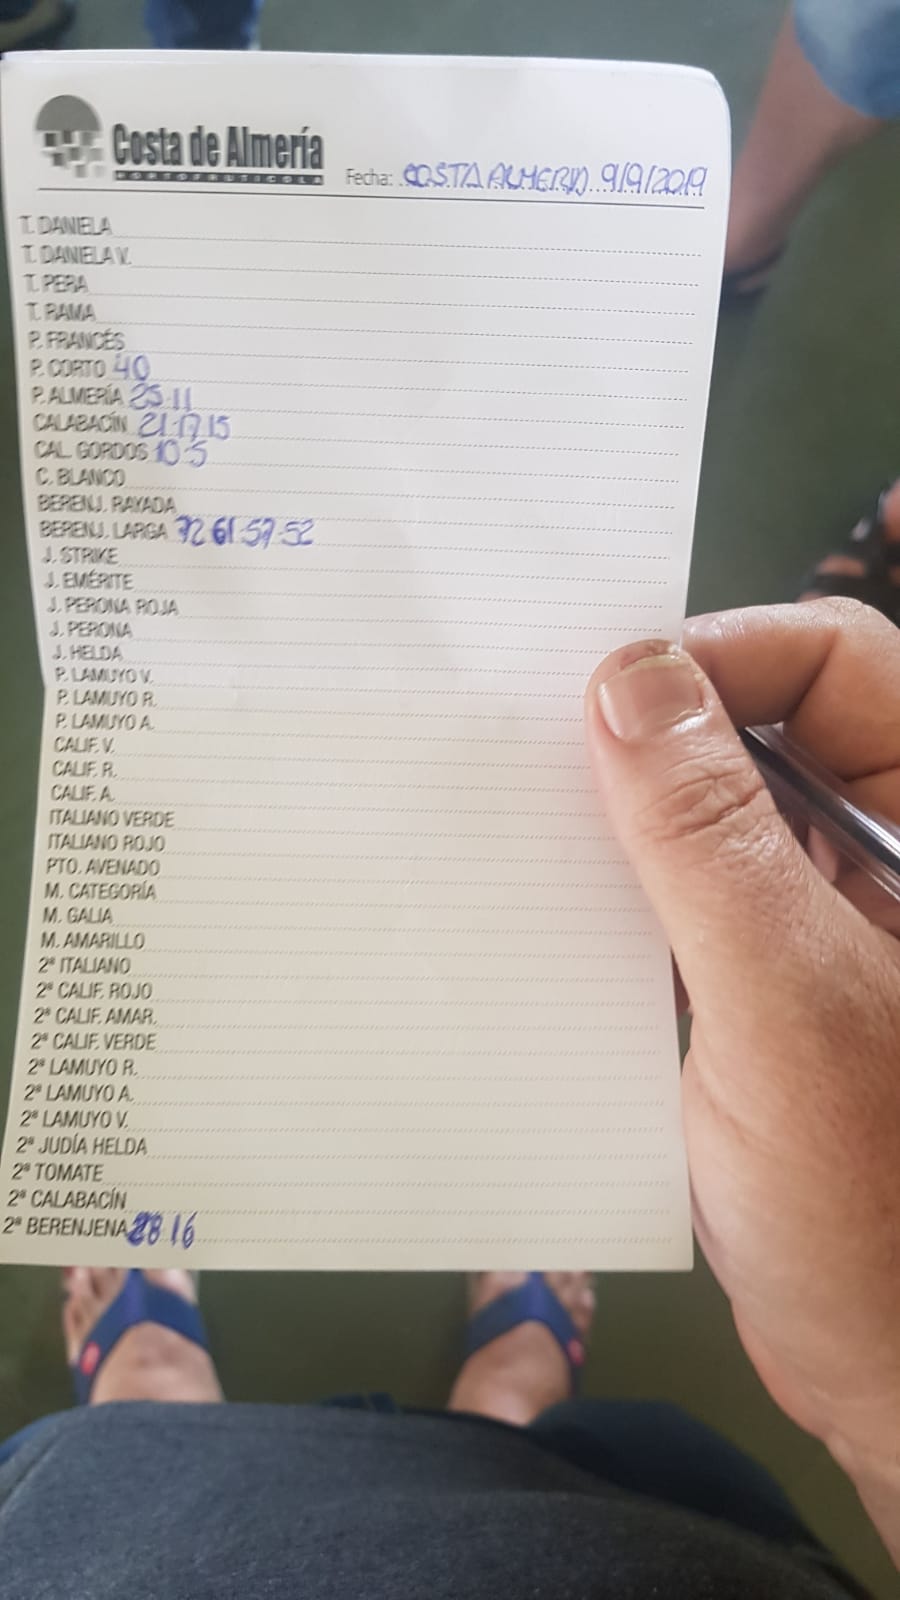 Costa de Almería
HORTOFRUTICOLA
Fecha: COSTA ALMERIA 9/9/2019
T. DANIELA
T. DANIELA V.
T. PERA
T. RAMA
P. FRANCÉS
P. CORTO 40
P. ALMERÍA 25·11
CALABACÍN 21·17·15
CAL. GORDOS 10·5
C. BLANCO
BERENJ. RAYADA
BERENJ. LARGA 72 61·57·52
J. STRIKE
J. EMÉRITE
J. PERONA ROJA
J. PERONA
J. HELDA
P. LAMUYO V.
P. LAMUYO R.
P. LAMUYO A.
CALIF. V.
CALIF. R.
CALIF. A.
ITALIANO VERDE
ITALIANO ROJO
PTO. AVENADO
M. CATEGORÍA
M. GALIA
M. AMARILLO
2ª ITALIANO
2ª CALIF. ROJO
2ª CALIF. AMAR.
2ª CALIF. VERDE
2ª LAMUYO R.
2ª LAMUYO A.
2ª LAMUYO V.
2ª JUDÍA HELDA
2ª TOMATE
2ª CALABACÍN
2ª BERENJENA 28 16